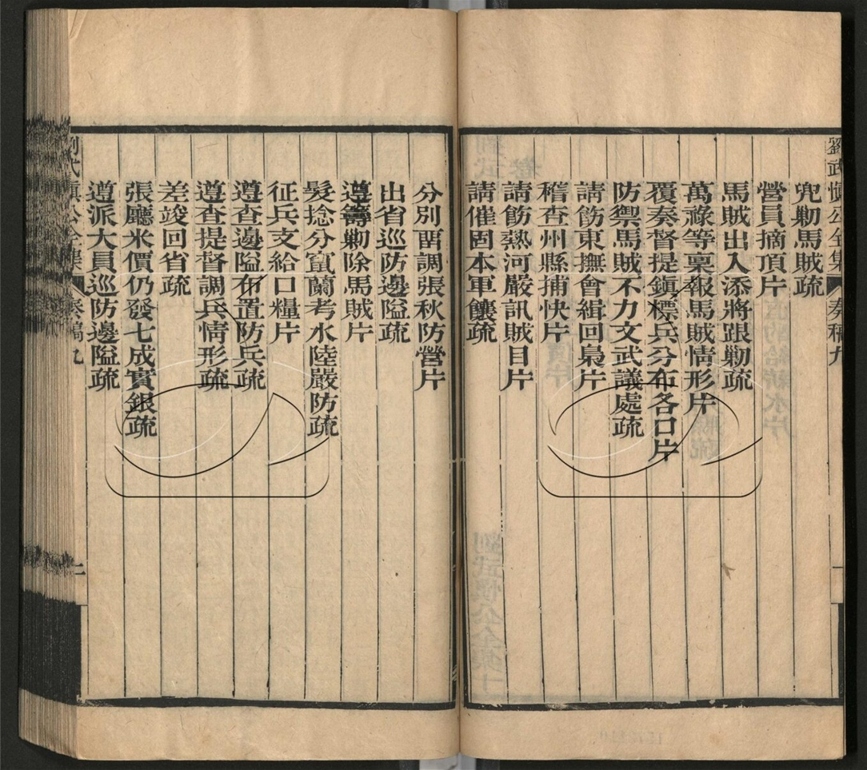 劉武慎公全集 奏稿九
兜剿馬賊疏
營員摘頂片
馬賊出入添將跟剿疏
萬祿等稟報馬賊情形片
覆奏督提鎮標兵分布各口片
防禦馬賊不力文武議處疏
請飭東撫會緝回梟片
稽查州縣捕快片
請飭熱河嚴訊賊目片
請催固本軍饟疏
分別酉調張秋防營片
出省巡防邊隘疏
遵籌剿除馬賊片
髮捻分竄蘭考水陸嚴防疏
征兵支給口糧片
遵查邊隘布置防兵疏
遵查提督調兵情形疏
差竣回省疏
張廳米價仍發七成實銀疏
遵派大員巡防邊隘疏
劉武慎公全集 奏稿九
二